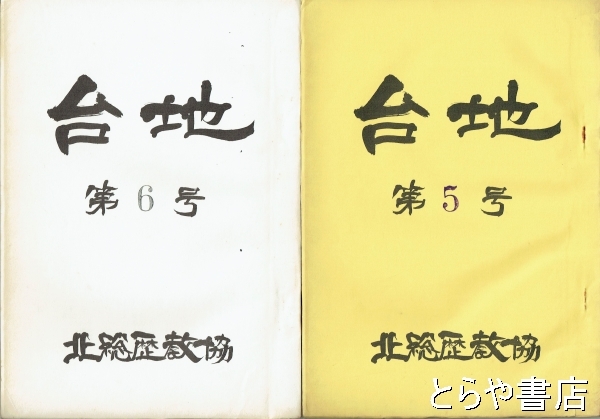 台地
第6号
北総歴教協
台地
第5号
北総歴教協
とらや書店